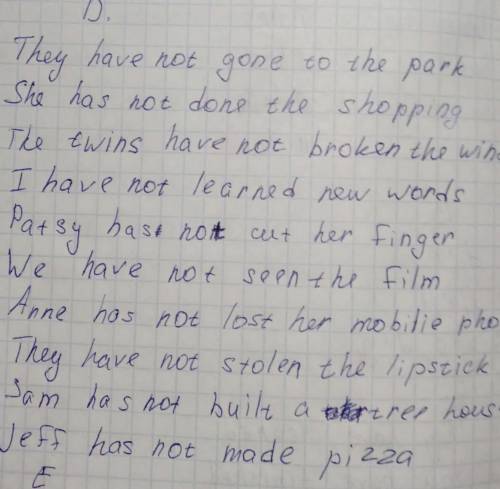 D.
They have not gone to the park
She has not done the shopping
The twins have not broken the wind
I have not learned new words
Patsy has not cut her finger
We have not seen the film
Anne has not lost her mobilie pho
They have not stolen the lipstick
Sam has not built a tree hous
Jeff has not made pizza
E